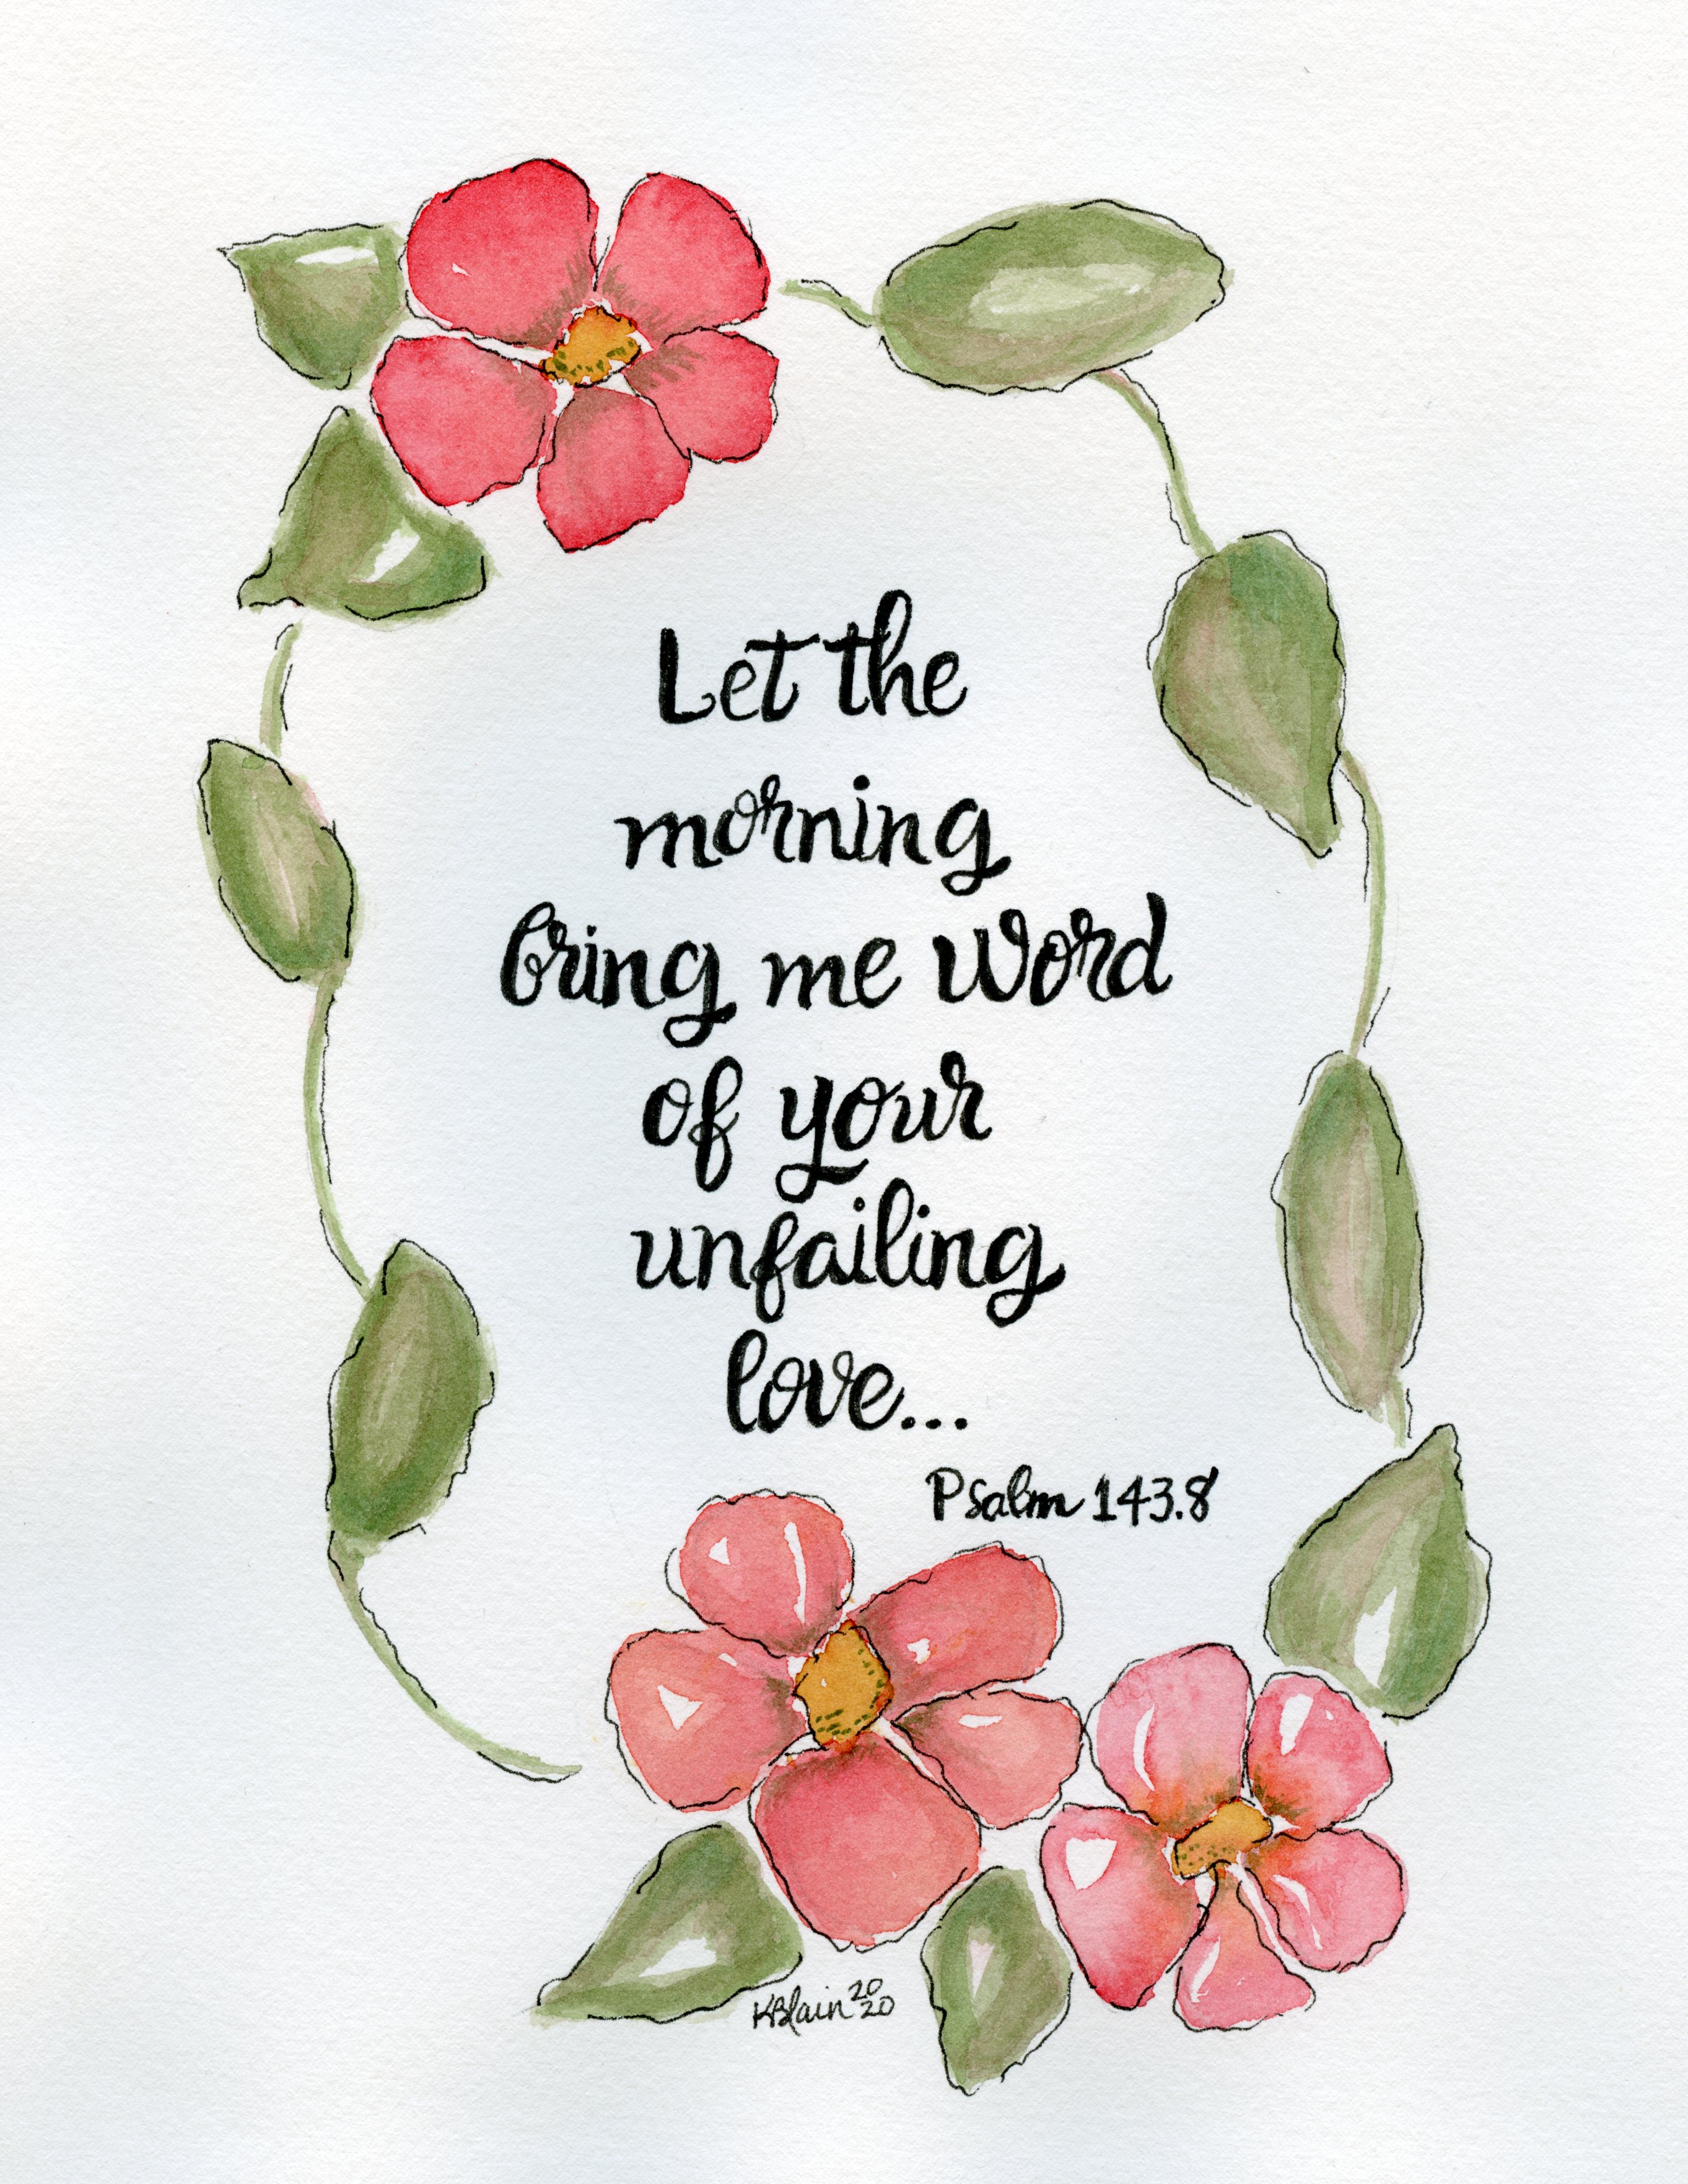 Let the
morning
bring me word
of your
unfailing
love...
Psalm 143.8
KBlain 2020